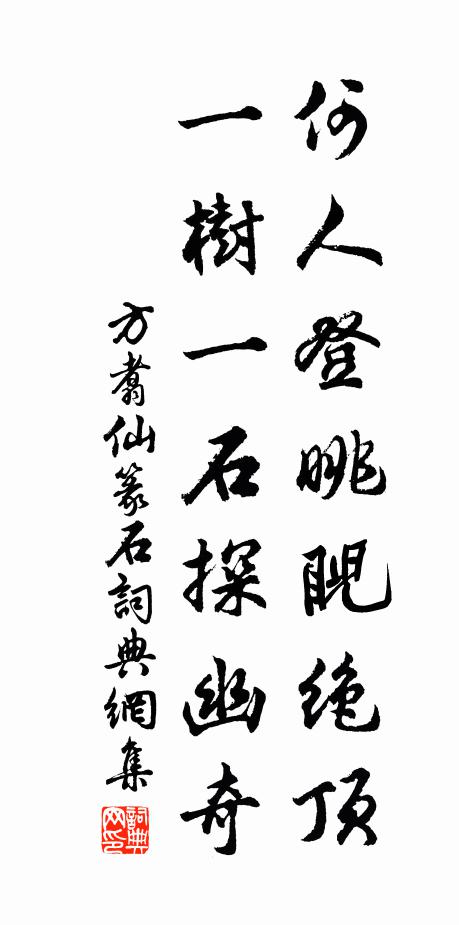 何人登眺睨絶頂
一樹一石探幽奇
方翥仙篆石詞典網集
詞典网印